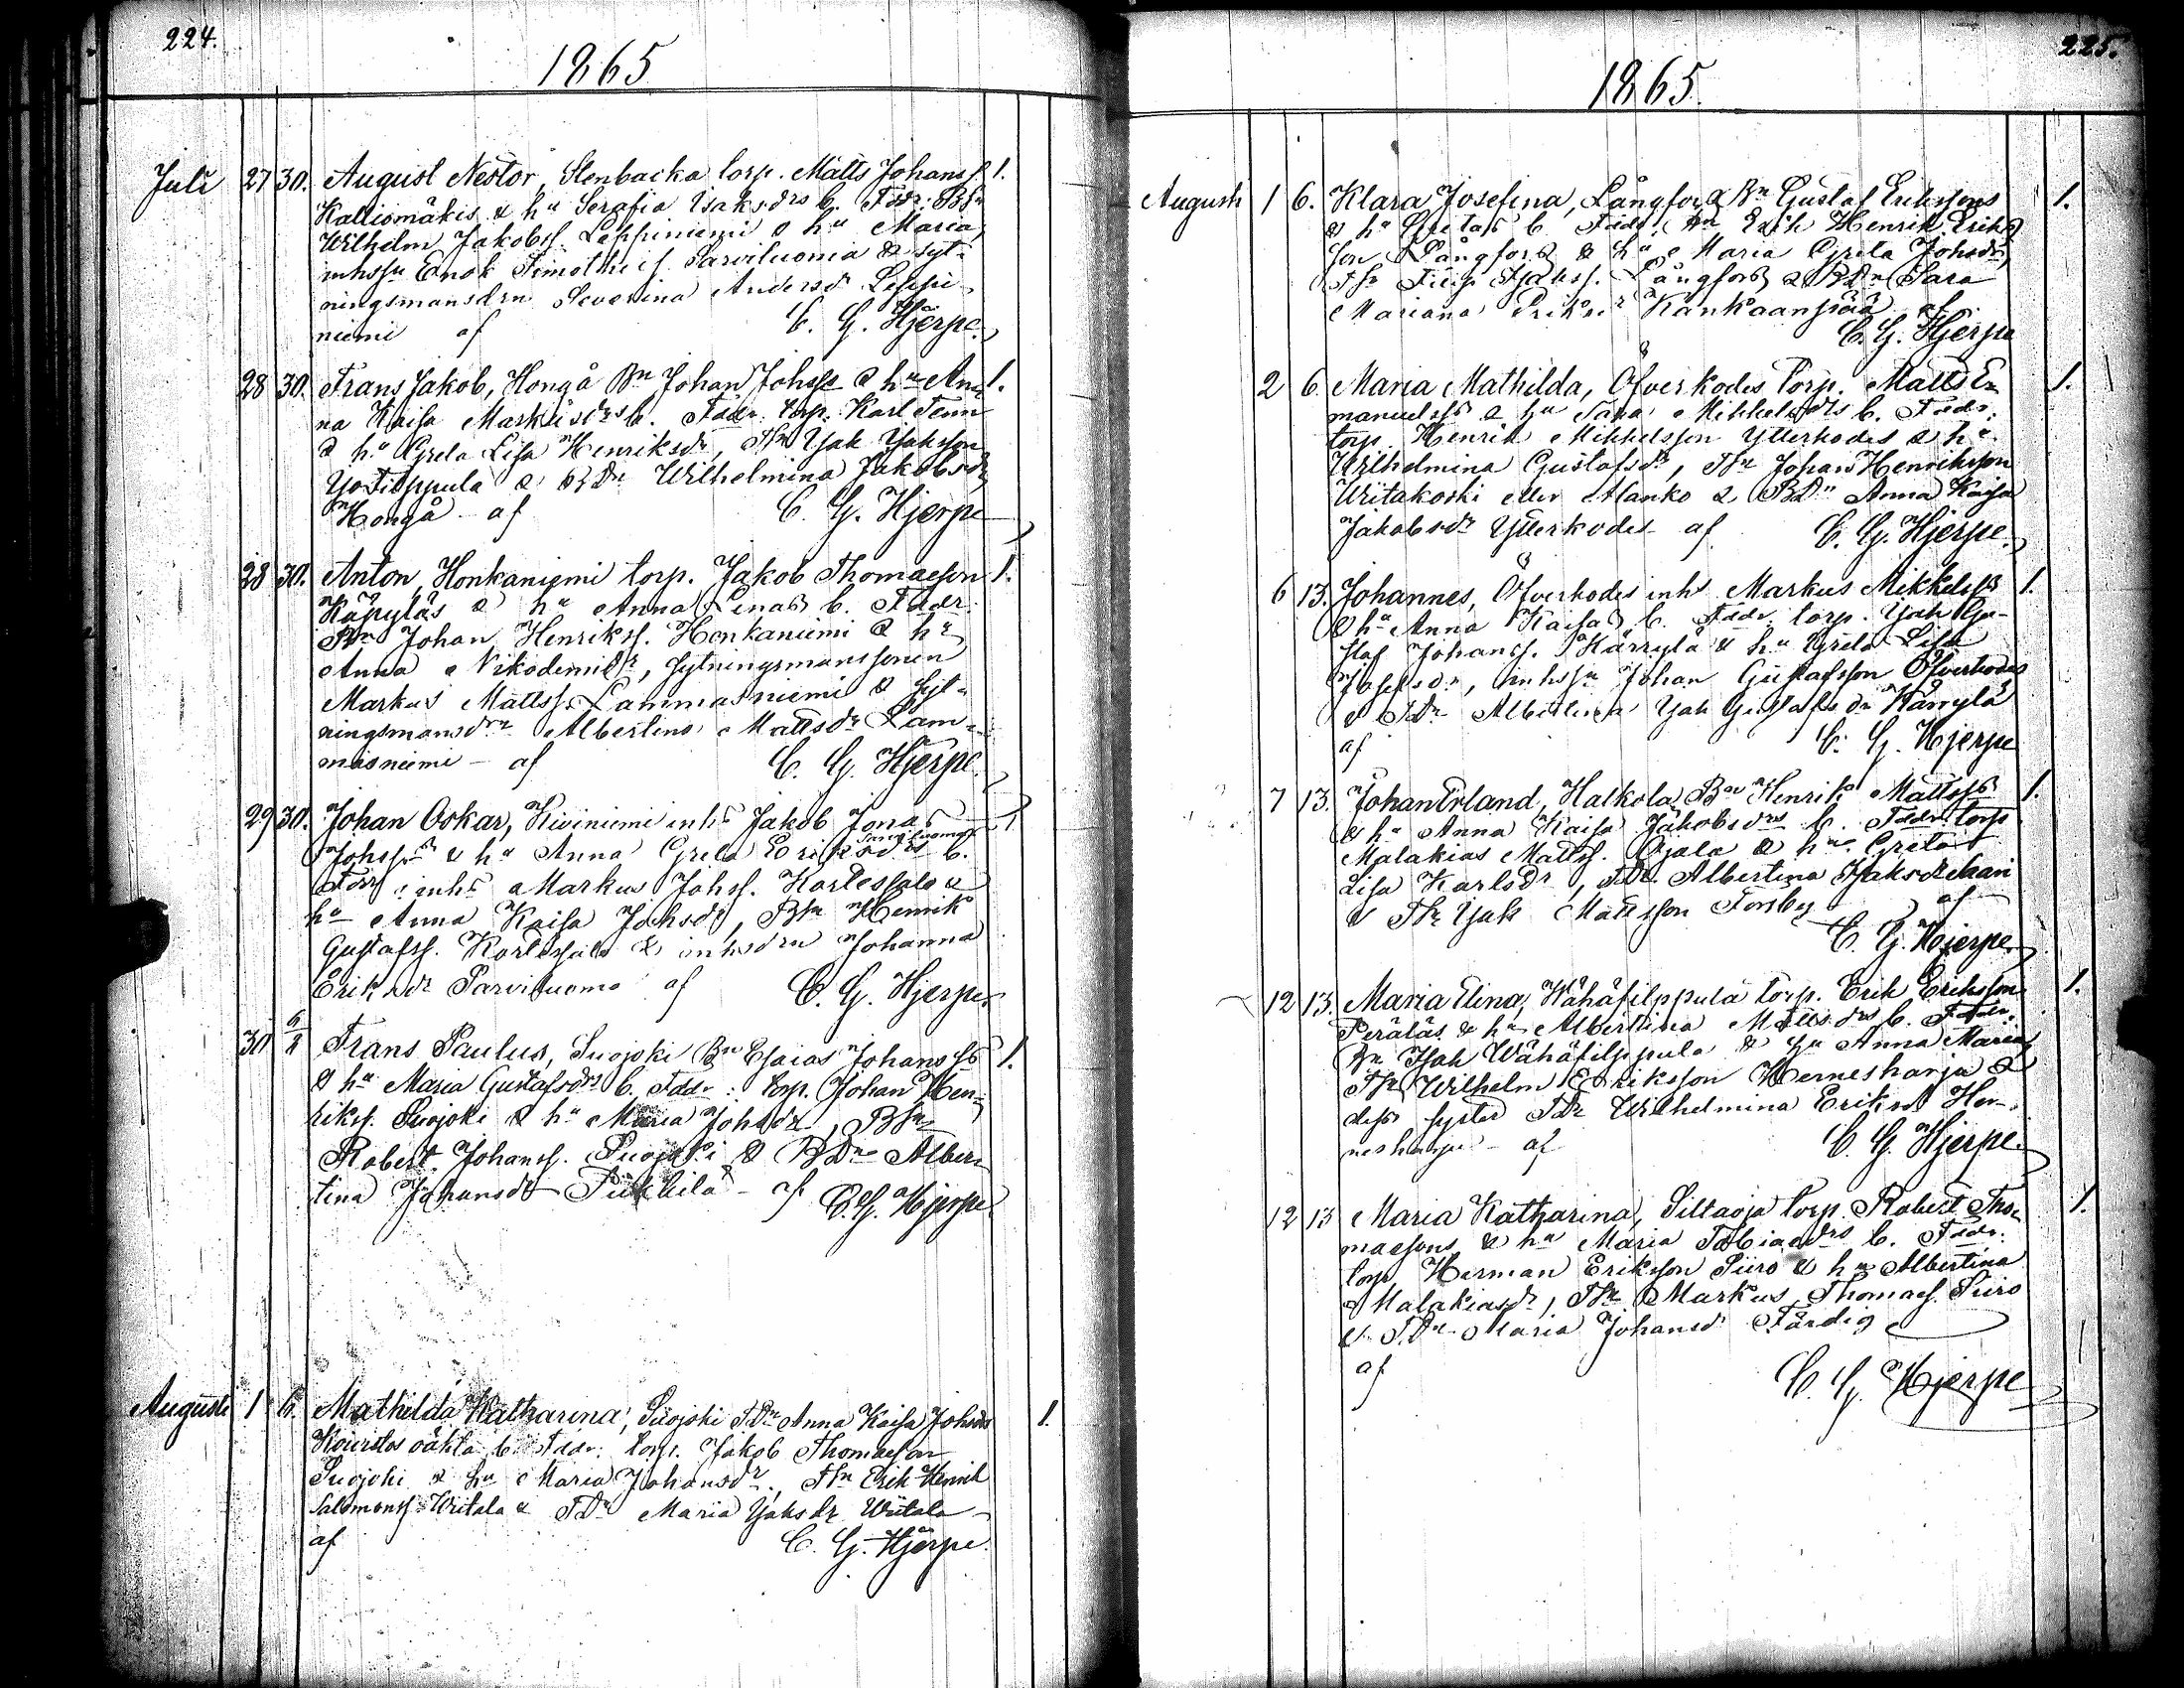 224.
1865
Juli 27 30. August Nestor, Stenbacka torp. Matts Johanss. 1.
Kalliomäkis & hu Serafia Isaksdrs b. Faddr: Bsn
Wilhelm Jakobss. Leppiniemi & hu Maria,
inhssn Enok Timotheis. Sarviluoma & syt-
ningsmansdrn Severina Andersdr Leppi-
niemi af C. G. Hjerpe.
28 30. Frans Jakob, Hongå Bn Johan Johss. & hu An- 1.
na Kaisa Markusdrs b. Faddr. torp. Karl Tenn
& hu Greta Lisa Henriksdr, Tsn Isak Isaksson
Yofilppula & BDn Wilhelmina Jakobsdr
Hongå - af C. G. Hjerpe
28 30. Anton, Honkaniemi torp. Jakob Thomaeson 1.
Käpyläs & hu Anna Lenas b. Faddr.
Bn Johan Henrikss. Honkaniemi & hu
Anna Nikodemidr, sytningsmanssonen
Markus Mattss. Lammasniemi & syt-
ningsmansdrn Albertina Mattsdr Lam-
masniemi - af C. G. Hjerpe.
29 30. Johan Oskar, Kiviniemi inhs Jakob Jonas 1
Sarviluoma
Johss. & hu Anna Greta Eriksdrs b.
Faddr: inhs Markus Johss. Kortessalo &
hu Anna Kaisa Johsdr, Bsn Henrik
Gustafss. Kortessalo & inhsdrn Johanna
Eriksdr Sarviluoma af C. G. Hjerpe
30 6/8 Frans Paulus, Suojoki Bn Esaias Johanss. 1.
& hu Maria Gustafsdrs b. Faddr: torp. Johan Hen-
rikss. Suojoki & hu Maria Johsdr, Bsn
Robert Johanss. Suojoki & BDn Alber-
tina Johansdr Pukkila - af C. G. Hjerpe
Augusti 1 6. Mathilda Katharina, Suojoki TDn Anna Kaisa Johsdrs 1.
oäkta b. Faddr: torp. Jakob Thomaeson
Suojoki & hu Maria Johansdr, Tsn Erik Henrik
Salomonss. Wiitala & TDn Maria Isaksdr Wiitala -
af C. G. Hjerpe.
225.
1865.
Augusti 1 6. Klara Josefina, Långfors Bn Gustaf Erikssons 1.
& hu Gretas b. Faddr. Bn Erik Henrik Eriks
son Långfors & hu Maria Greta Johsdr,
Tsn Isakss. Långfors & BDn Sara
Mariana Eriksdr Kankaanpää af
C. G. Hjerpe
2 6. Maria Mathilda, Öfverkodes torp. Matts E- 1.
manuelss. & hu Sana Mikkelsdrs b. Faddr.
torp. Henrik Mikkelsson Ytterkodes & hu
Wilhelmina Gustafsdr, Tsn Johan Henriksson
Wiitakoski eller Alanko & BDn Anna Kaisa
Jakobsdr Ytterkodes - af C. G. Hjerpe.
6 13. Johannes, Öfverkodes inhs Markus Mikkelss. 1.
& hu Anna Kaisas b. Faddr. torp. Isak Gu-
staf Johanss. Kärrylä & hu Greta Lisa
Josefsdr, inhssn Johan Gustafsson Öfverkodes
& TDn Albertina Isak Gustafsdr Kärrylä
af C. G. Hjerpe
7 13. Johan Erland, Halkola Bn Henrik Mattss. 1.
& hu Anna Kaisa Jakobsdrs b. Faddr. torp
Malakias Mattss. Ojala & hu Greta
Lisa Karlsdr, TDn Albertina Isaksdr
& Tsn Isak Mattsson Forsby af
C. G. Hjerpe.
12 13. Maria Elina, Wähäfilppula torp. Erik Eriksson 1.
Peräläs & hu Albertina Mattsdrs b. Faddr:
Bn Isak Wähäfilppula & hu Anna Maria,
Tsn Wilhelm Eriksson Hernesharja &
dess syster TDn Wilhelmina Eriksd Her-
nesharju - af C. G. Hjerpe.
12 13 Maria Katharina, Siltaoja torp. Robert Tho- 1.
maesons & hu Maria Tobiaedrs b. Faddr.
torp Herman Eriksson Siiro & hu Albertina
Malakiasdr, Tsn Markus Thomaes. Siiro
& TDn Maria Johansdr Färdig
af C. G. Hjerpe